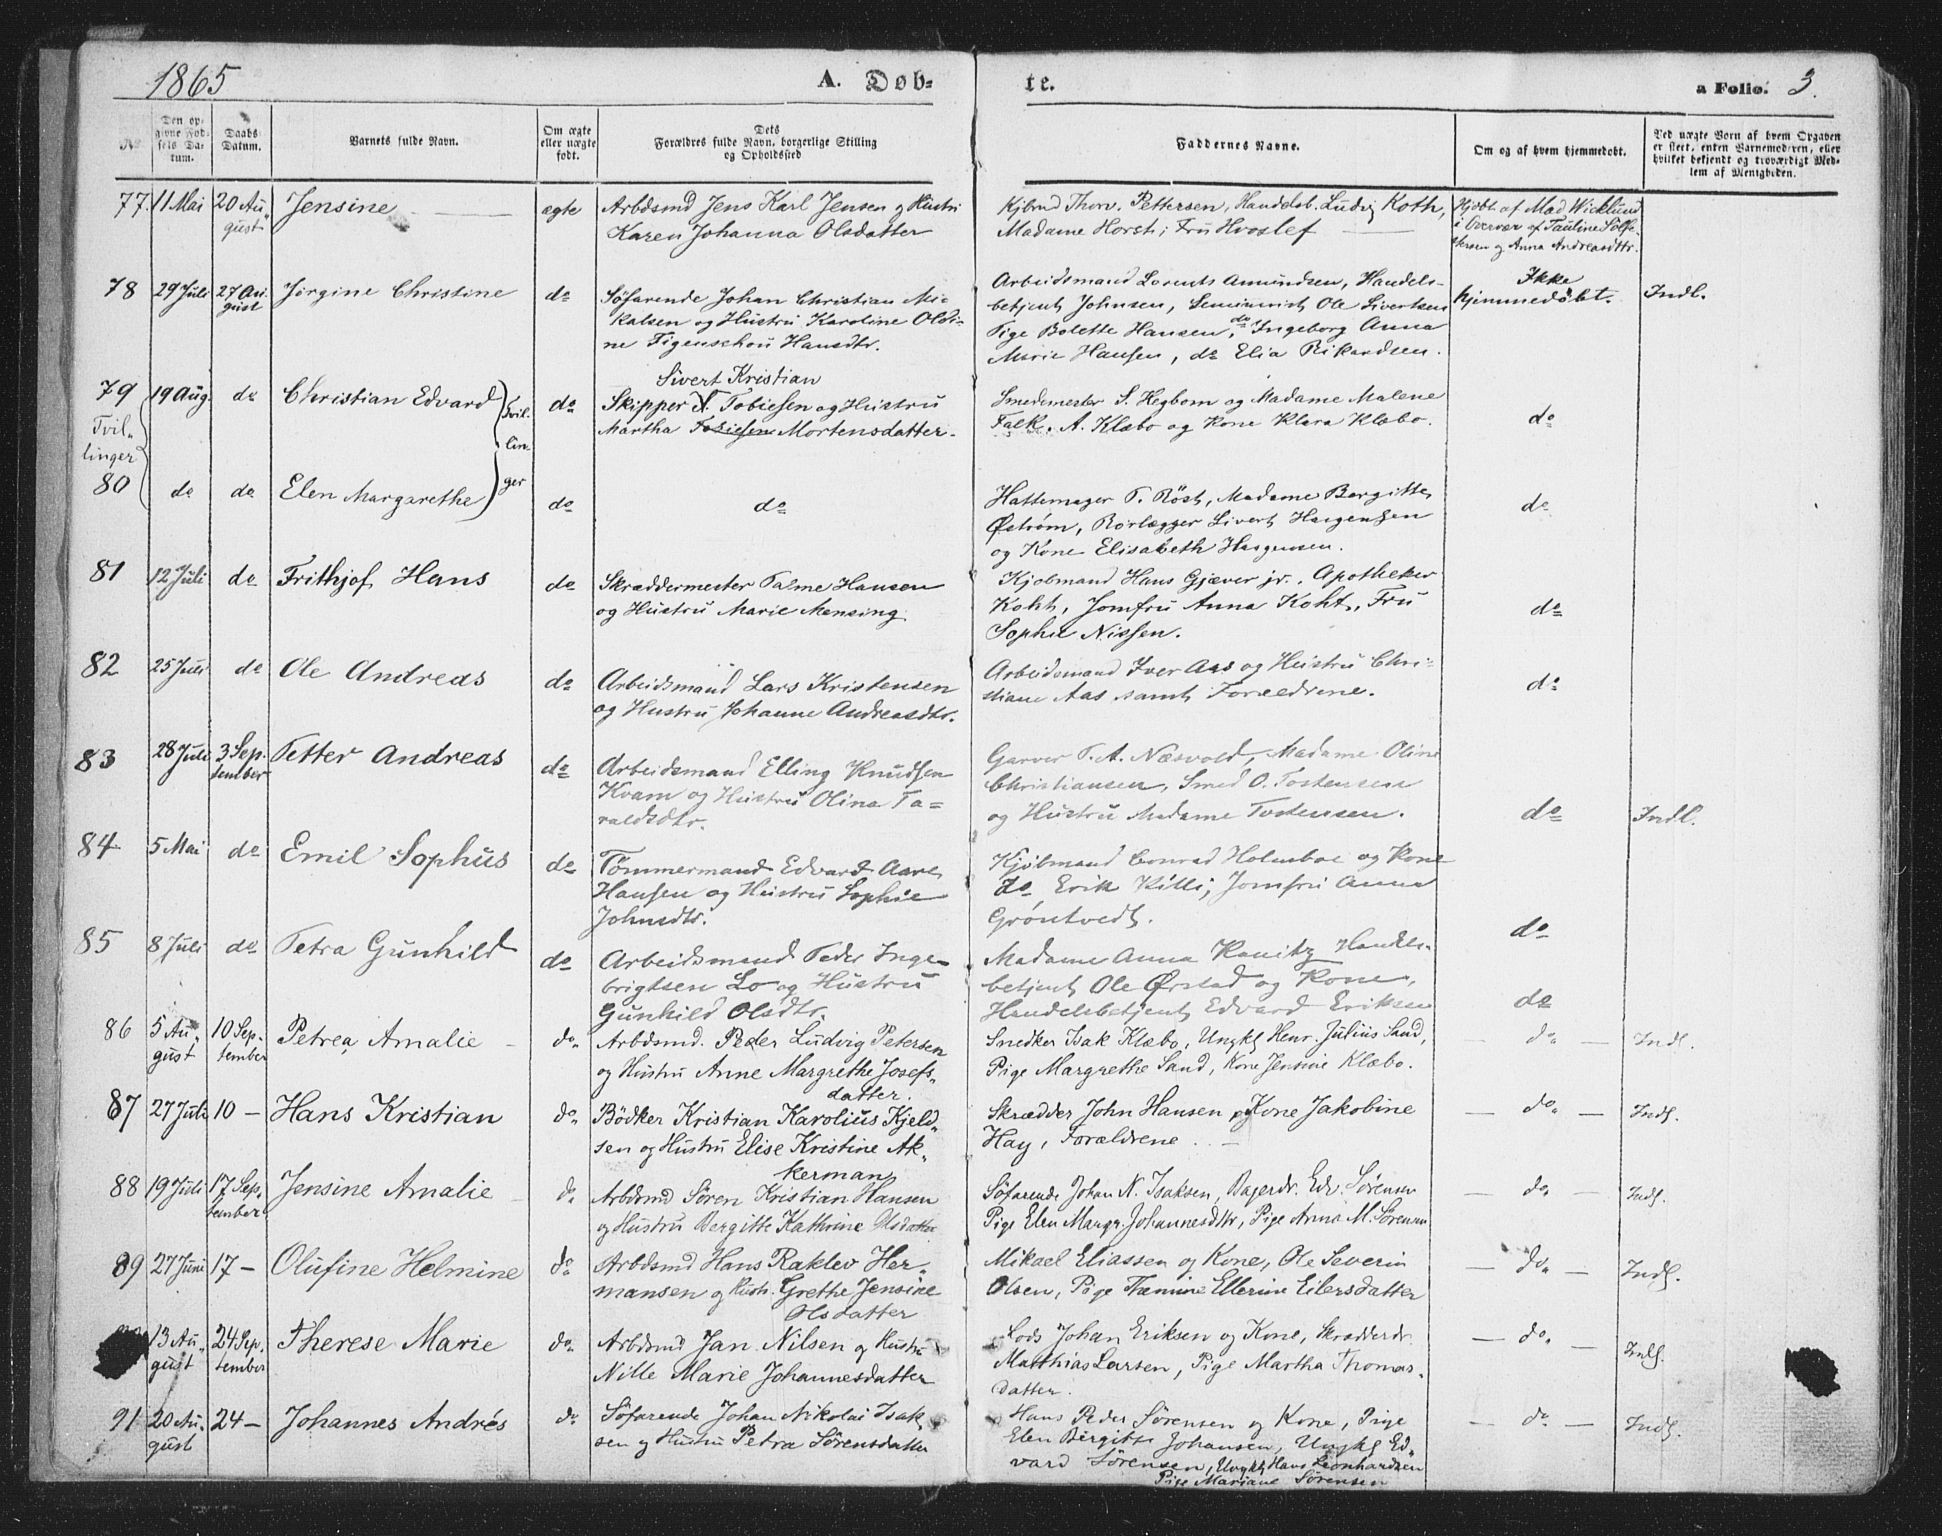 1865 A. Døb- te. a Folio. 3.
No Den opgivne Fødsels Datum. Daabs Datum. Barnets fulde Navn. Om ægte eller uægte født. Dets Forældres fulde Navn, borgerlige Stilling og Opholdssted Faddernes Navne. Om og af hvem hjemmedøbt. Ved uægte Børn af hvem Opgaven er skeet, enten Barnemoderen, eller hvilket bekjendt og troværdigt Medlem af Menigheden.
77. 11 Mai 20 Au- Jensine ægte Arbdsmd Jens Karl Jensen og Hustru Kjbmd Thorv. Pettersen, Handelsb. Ludvig Koth, Hjdbt af Mad. Wicklund
gust Karen Johanna Olsdatter Madame Horst; Fru Hvoslef i Overvær af Pauline
og Anna Andreasdtr.
78 29 Juli 27 Au- Jörgine Christine do Söfarende Johan Christian Mi- Arbeidsmand Lorents Amundsen, Handels- Ikke
gust kalsen og Hustru Karoline Oldi- betjent Johnsen, Seminarist Ole Sivertsen hjemmedöbt. Indl.
ne Figenschou Hansdtr. Pige Bolette Hansen, do Ingeborg Anna
Marie Hansen, do Elia Rikardsen.
Sivert Kristian
79 19 Aug. do Christian Edvard Tvil- do Skipper T. Tobiesen og Hustru Smedemester S. Hegbom og Madame Malene
Tvil- lin- Martha Tobiesen Mortensdatter. Falk. A. Klæbo og Kone Klara Klæbo. do
linger
80 do do Elen Margarethe ger do do Hattemager P. Röst, Madame Bergitte do
Østrøm, Rörlægger Sivert
og Kone Elisabeth
81 12 Juli do Frithjof Hans do Skræddermester Palme Hansen Kjobmand Hans Gjæver jr., Apotheker
og Hustru Marie Mensing Koht, Jomfru Anna Koht, Fru do
Sophie Nissen.
82 25 Juli do Ole Andreas do Arbeidsmand Lars Kristensen Arbeidsmand Iver Aas og Hustru Chri-
og Hustru Johanne Andreasdtr. stiane Aas samt Forældrene. do
83 28 Juli 3 Sep- Petter Andreas do Arbeidsmand Elling Knudsen Garver P. A. Næsvold, Madame Oline
tember Kvam og Hustru Olina Ta- Christiansen, Smed O. Tostensen
raldsdtr. og Hustru Madame Tostensen. do Indl.
84 5 Mai do Emil Sophus do Tømmermand Edvard Aare Kjøbmand Conrad Holmboe og Kone
Hansen og Hustru Sophie do Erik Killi, Jomfru Anna
Johnsdtr. Gröntvedt. do
85 8 Juli do Petra Gunhild do Arbeidsmand Peder Inge- Madame Anna Kanitz Handels-
brigtsen Lo og Hustru betjent Ole Ørstad og Kone,
Gunhild Olsdtr. Handelsbetjent Edvard Eriksen do
86 5 Au- 10 Sep- Petrea Amalie do. Arbdsmd. Peder Ludvig Petersen Snedker Isak Klæbo, Ungkl Henr. Julius Sand, do Indl.
gust tember og Hustru Anne Margrethe Josefs- Pige Margrethe Sand, Kone Jensine Klæbo.
datter.
87 27 Juli 10 — Hans Kristian do. Bödker Kristian Karolius Kjeld- Skrædder John Hansen og Kone Jakobine do. Indl.
sen og Hustru Elise Kristine Ak- Hay, Forældrene.
kerman
88 19 Juli 17 Sep- Jensine Amalie do. Arbdsmd Sören Kristian Hansen Söfarende Johan N. Isaksen, Bagerdr. Edv. Sörensen do. Indl.
tember og Hustru Bergitte Kathrine Olsdatter Pige Elen Margr. Johannesdtr, Pige Anna M. Sörensen
89 27 Juni 17 — Olufine Helmine do. Arbdsmd Hans Raklev Her- Mikael Eliassen og Kone, Ole Severin do. Indl.
mansen og Hustr. Grethe Jensine Olsen, Pige Ellerine Eilersdatter
Olsdatter
13 Au- 24 Sep- Therese Marie do. Arbdsmd Jan Nilsen og Hustru Lods Johan Eriksen og Kone, Skrædderdr. do. Indl.
gust tember Nille Marie Johannesdatter Matthias Larsen, Pige Martha Thomas-
datter.
91 20 Au- 24 — Johannes Andrés do. Söfarende Johan Nikolai Isak- Hans Peder Sörensen og Kone, Pige do. Indl.
gust sen og Hustru Petra Sörensdatter Elen Bergitte Johansen, Ungkl Ed-
vard Sörensen, Ungkl Hans Leonhardsen
Pige Mariane Sörensen